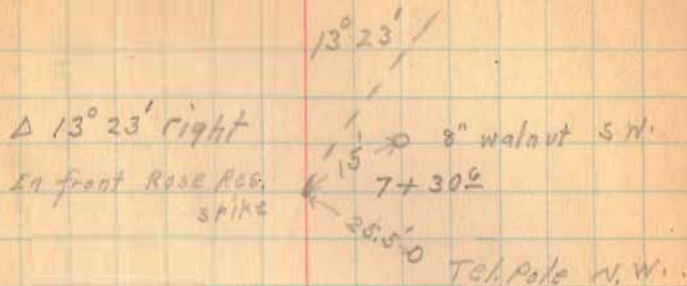 13° 23'
Δ 13° 23' right
15'
8" walnut S.W.
En front Rose Res.
spike
7+30⁶
25.5'
Tel. Pole N.W.